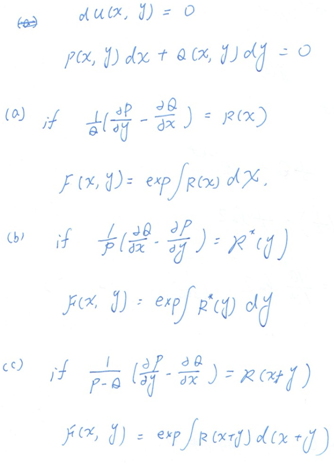 du(x, y) = 0
P(x, y) dx + Q(x, y) dy = 0
(a) if 1/Q (∂P/∂y - ∂Q/∂x) = R(x)
F(x, y) = exp ∫ R(x) dx.
(b) if 1/P (∂Q/∂x - ∂P/∂y) = R*(y)
F(x, y) = exp ∫ R*(y) dy
(c) if 1/P-Q (∂P/∂y - ∂Q/∂x) = R(x+y)
F(x, y) = exp ∫ R(x+y) d(x+y)